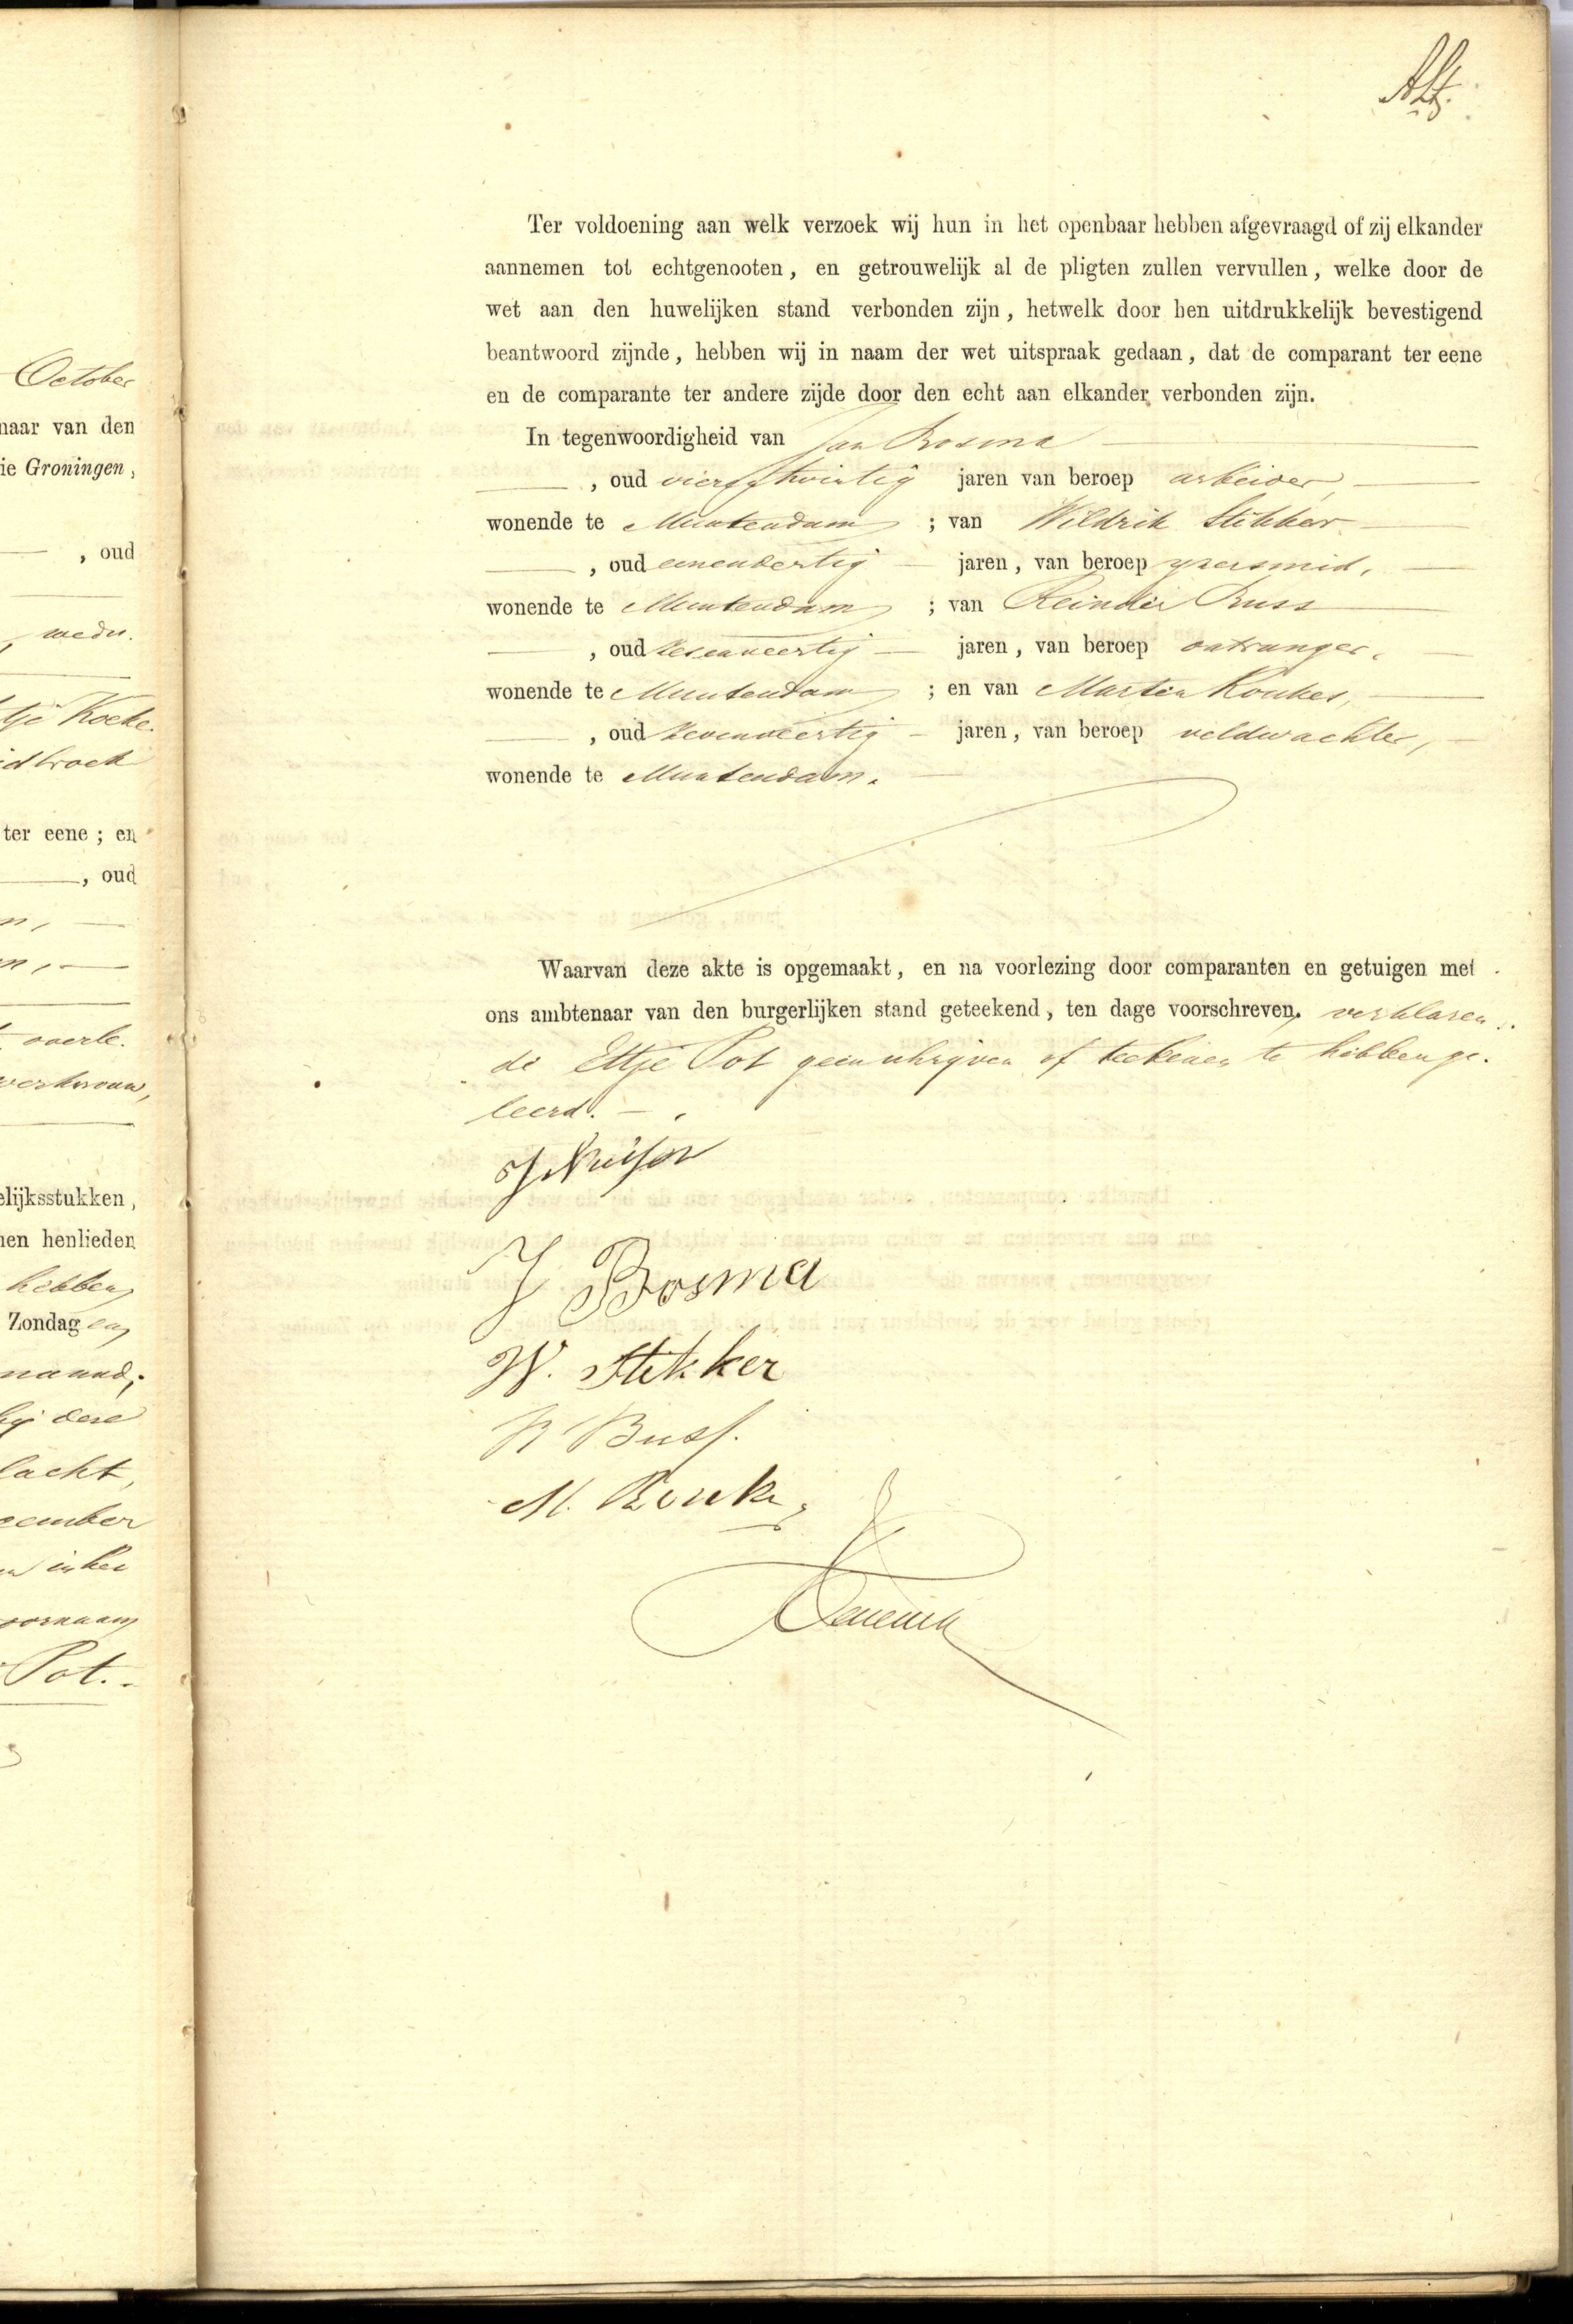 October
naar van den
ie Groningen,
, oud
, wedu.
tje Koeke.
idbroek
ter eene; en
, oud
overle.
werkvrouw,
elijksstukken,
hen henlieden
hebben
Zondag en
maand;
bij deze
lacht,
cember
Pot.
Ter voldoening aan welk verzoek wij hun in het openbaar hebben afgevraagd of zij elkander
aannemen tot echtgenooten, en getrouwelijk al de pligten zullen vervullen, welke door de
wet aan den huwelijken stand verbonden zijn, hetwelk door hen uitdrukkelijk bevestigend
beantwoord zijnde, hebben wij in naam der wet uitspraak gedaan, dat de comparant ter eene
en de comparante ter andere zijde door den echt aan elkander verbonden zijn.
In tegenwoordigheid van Jan Bosma
, oud vierentwintig jaren van beroep arbeider,
wonende te Muntendam ; van Wildrik Stikker
, oud eenendertig jaren, van beroep ijzersmid,
wonende te Muntendam ; van Reinder Buss
, oud zesenveertig jaren, van beroep ontvanger,
wonende te Muntendam ; en van Marten Roukes,
, oud zevenveertig jaren, van beroep veldwachter,
wonende te Muntendam.
Waarvan deze akte is opgemaakt, en na voorlezing door comparanten en getuigen met
ons ambtenaar van den burgerlijken stand geteekend, ten dage voorschreven, verklaren
de Ettje Pot geen schrijven of teekenen te hebben ge-
leerd.
J Bosma
W. Stikker
R Buss.
M. Rouke